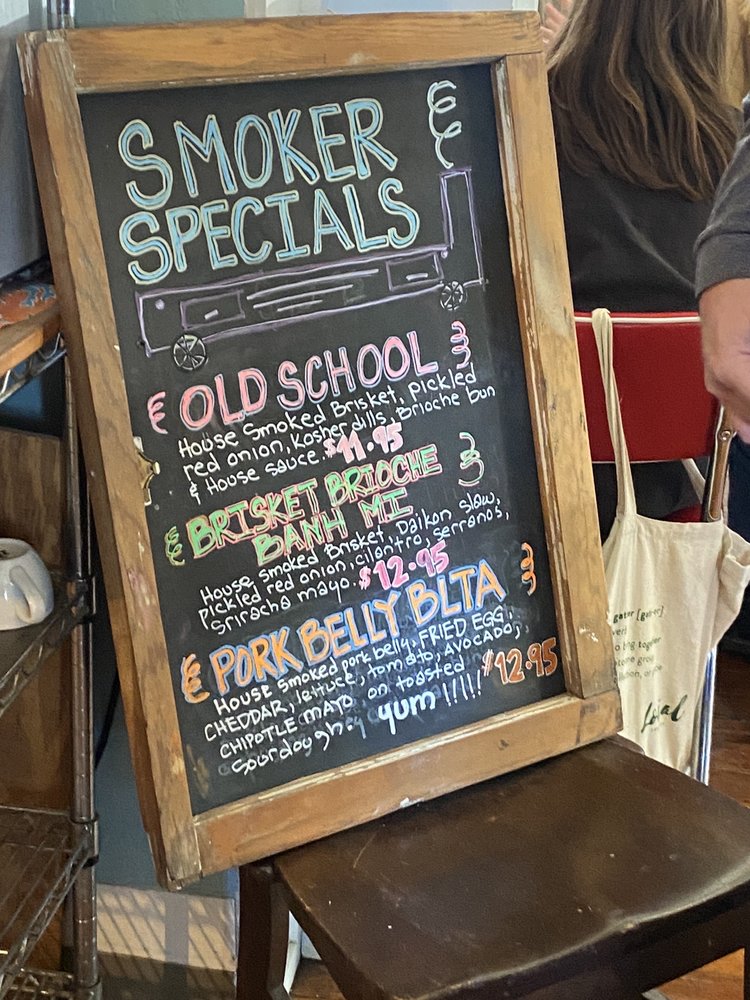 SMOKER
SPECIALS
OLD SCHOOL
House Smoked Brisket, Pickled
red onion, Kosher dills, Brioche bun
& House sauce. $11.95
BRISKET BRIOCHE
BANH MI
House smoked Brisket, Daikon slaw,
Pickled red onion, cilantro, serranos,
sriracha mayo. $12.95
PORK BELLY BLTA
House smoked pork belly, FRIED EGG,
CHEDDAR, lettuce, tomato, AVOCADO,
CHIPOTLE MAYO on toasted $12.95
sourdough yum !!!!!
gater [gater]